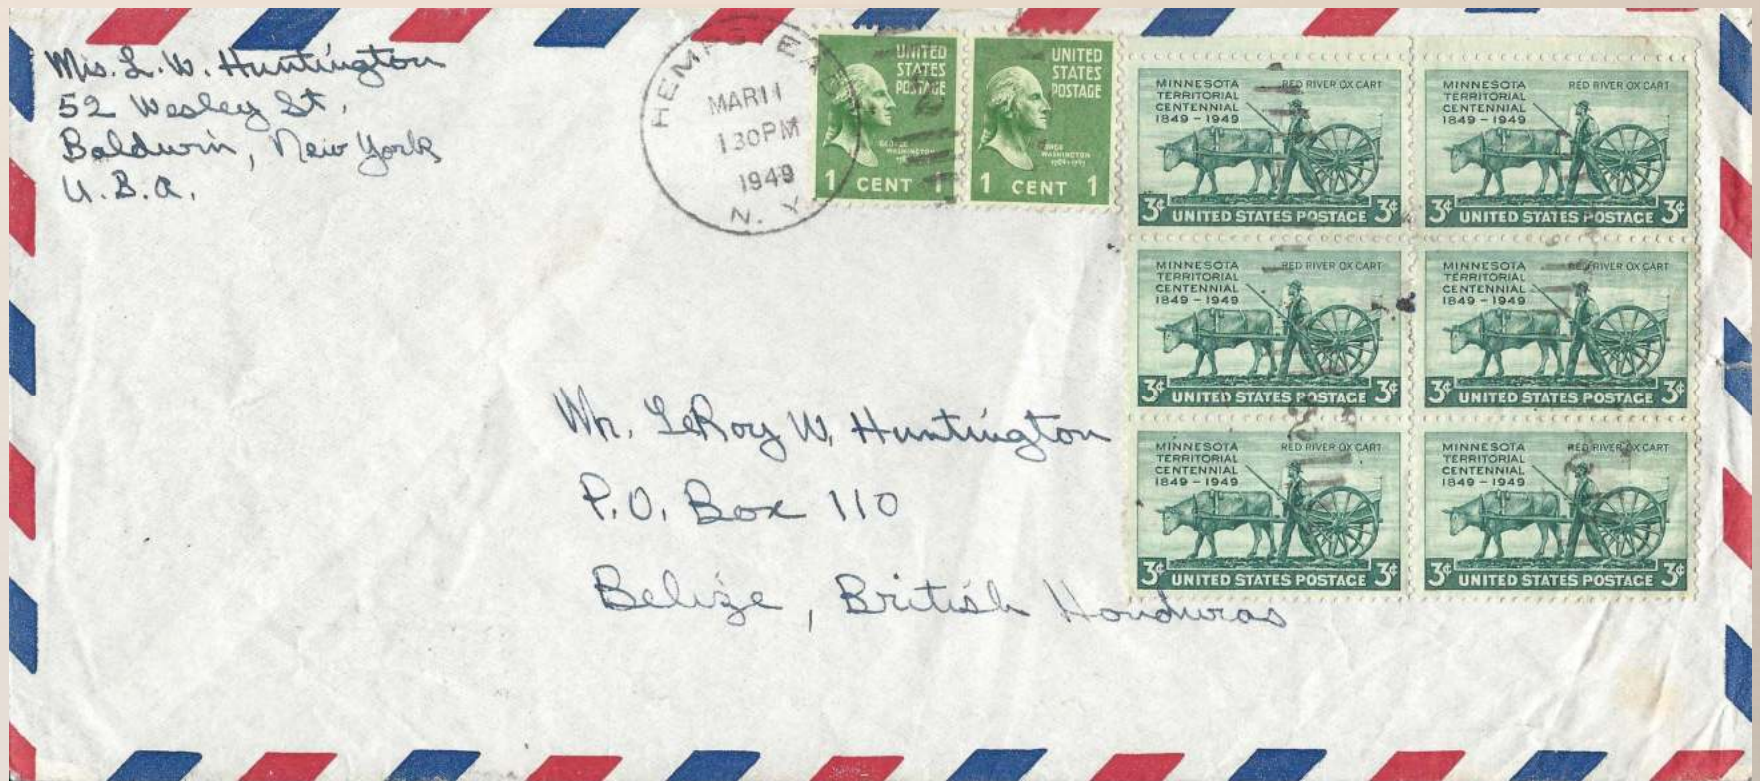 Mrs. L. W. Huntington
52 Wesley St,
Baldwin, New York
U.S.A.
HEMPSTEAD
MAR 11
1 30 PM
1949
N. Y.
UNITED
STATES
POSTAGE
GEORGE
WASHINGTON
1 CENT 1
UNITED
STATES
POSTAGE
GEORGE
WASHINGTON
1789-1797
1 CENT 1
MINNESOTA
TERRITORIAL
CENTENNIAL
1849 – 1949
RED RIVER OX CART
3¢ UNITED STATES POSTAGE 3¢
MINNESOTA
TERRITORIAL
CENTENNIAL
1849 – 1949
RED RIVER OX CART
3¢ UNITED STATES POSTAGE 3¢
MINNESOTA
TERRITORIAL
CENTENNIAL
1849 – 1949
RED RIVER OX CART
3¢ UNITED STATES POSTAGE 3¢
MINNESOTA
TERRITORIAL
CENTENNIAL
1849 – 1949
RED RIVER OX CART
3¢ UNITED STATES POSTAGE 3¢
MINNESOTA
TERRITORIAL
CENTENNIAL
1849 – 1949
RED RIVER OX CART
3¢ UNITED STATES POSTAGE 3¢
MINNESOTA
TERRITORIAL
CENTENNIAL
1849 – 1949
RED RIVER OX CART
3¢ UNITED STATES POSTAGE 3¢
Mr. LeRoy W. Huntington
P.O. Box 110
Belize, British Honduras